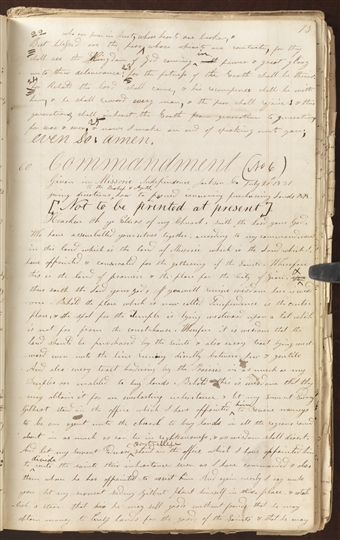 13
22
who are pure in heart, whose hearts are broken, &
But blessed are the poor, whose spirits are contrite for they
shall see the Kingdom of God coming in power & great glory
unto their deliverance: for the fatness of the Earth shall be theirs;
for Behold the Lord shall come, & his recompense shall be with
him, & he shall reward every man, & the poor shall rejoice; & their
generations shall inherit the Earth from generation to generation,
for ever & ever, & now I make an end of speaking unto you;
even so: amen.
60 Commandment (No 6)
Given in Missouri Independence Jackson Co July 20 1831
[Not to be Printed at present]
Hearken Oh ye Elders of my Church saith the Lord your God,
who have assembled yourselves together, according to my commandment
in this land which is the land of Missorie which is the Land which I
have appointed & consecrated for the gathering of the Saints. Wherefore
this is the land of promise & the place for the City of Zion
thus saith the Lord your God, if you will receive wisdom here is
wisdom. Behold the place which is now called Independence is the center
place, & the spot for the Temple is lying westward upon a lot which
is not far from the courthouse. Wherefore it is wisdom that the
land should be purchased by the Saints & also every tract lying west
ward even unto the line running directly between Jew & gentile
And also every tract bordering by the Prairies in as much as my
Disciples are enabled to buy lands. Behold this is wisdom that they
may obtain it for an everlasting inheritance. & let my servent Sidney
Gilbert stand in the office which I have appointed him to receive moneys
to be an agent unto the church to buy lands in all the regions round
about in as much as can be in righteousness, & as wisdom shall direct.
And let my servent Edward stand in the office which I have appointed him to
divide unto the saints their inheritance even as I have commanded & also
them whom he has appointed to assist him. And again verily I say unto
you let my servent Sidney Gilbert plant himself in this place, & establish
a store that he may sell goods without fraud that he may
obtain money to buy lands for the good of the Saints & that he may